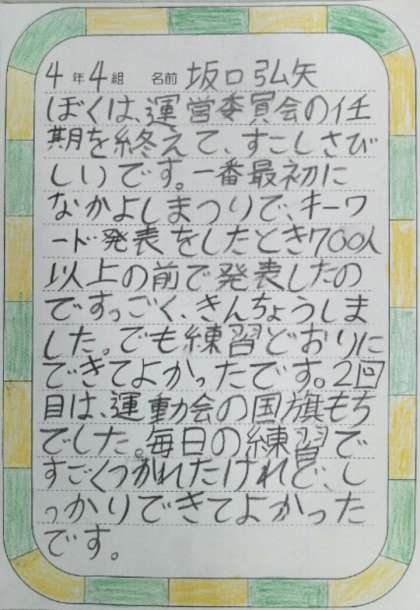 4年4組 名前 坂口弘矢
ぼくは、運営委員会のイ壬
期を終えて、すこしさび
しいです。一番最初に
なかよしまつりで、キーワ
ード発表をしたとき700人
以上の前で発表したの
ですっごく、きんちょうしま
した。でも練習どおりに
できてよかったです。2回
目は、運動会の国旗もち
でした。毎日の練習で
すごくつかれたけれど、し
っかりできてよかった
です。